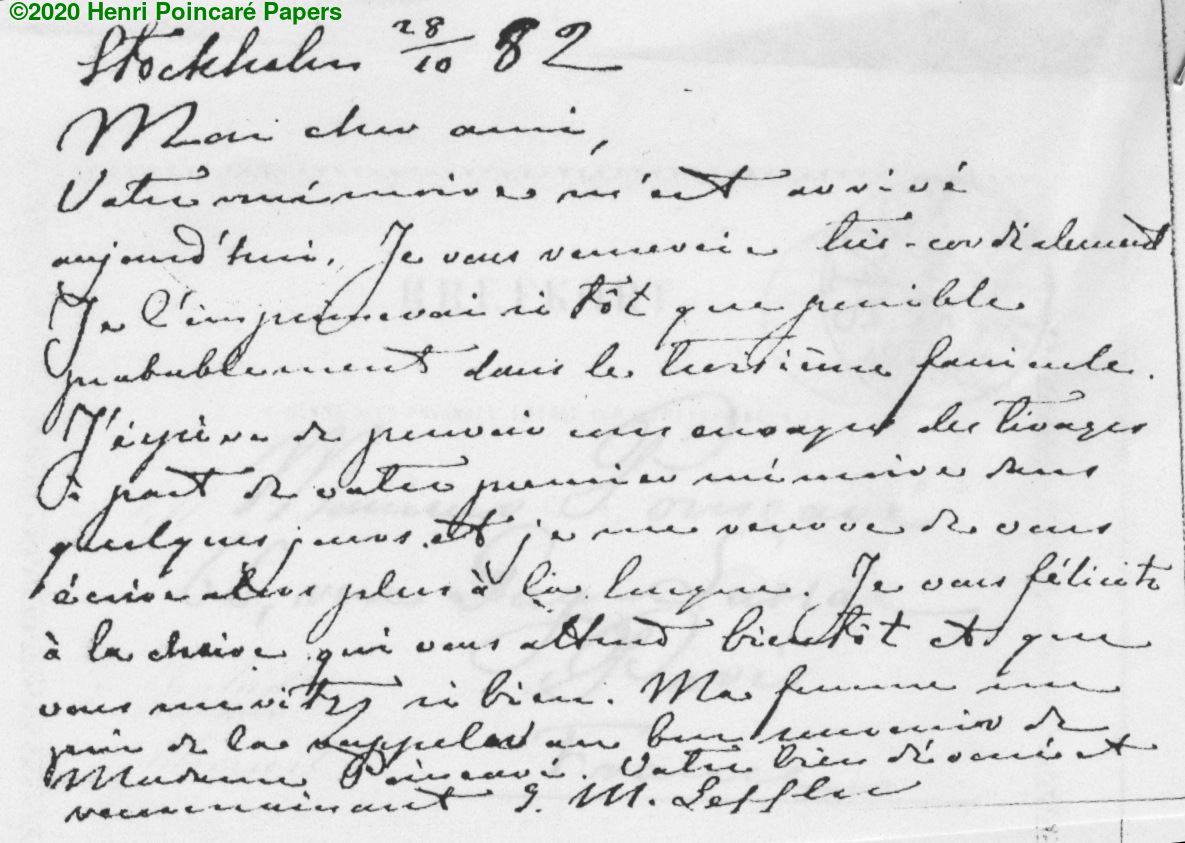 ©2020 Henri Poincaré Papers
Stockholm 28/10 82
Mon cher ami,
Votre mémoire m'est arrivé
aujourd'hui. Je vous remercie très-cordialement
Je l'imprimerai si tôt que possible
probablement dans le troisième fascicule.
J'éspère de pouvoir vous envoyer les tirages
à part de votre premier mémoire dans
quelques jours et je me réserve de vous
écrire alors plus à la longue. Je vous félicite
à la chaire qui vous attend bientôt et que
vous méritez si bien. Ma femme me
prie de la rappeler au bon souvenir de
Madame Poincaré. Votre bien dévoué et
reconnaissant G. M. Leffler